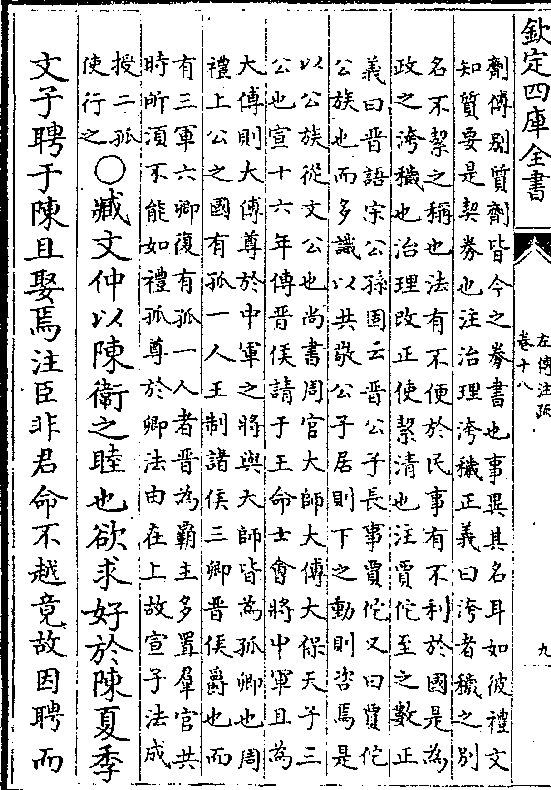 欽定四庫全書
左傳注疏
卷十八
九
劑傅别質劑皆今之劵書也事異其名耳如彼禮文
知質要是契劵也注治理洿穢正義曰洿者穢之别
名不絜之稱也法有不便於民事有不利於國是為
政之洿穢也治理改正使絜清也注賈佗至之數正
義曰晋語宋公孫固云晋公子長事賈佗又曰賈佗
公族也而多識以共敬公子居則下之動則咨焉是
以公族從文公也尚書周官大師大傅大保天子三
公也宣十六年傳晋侯請于王命士會將中軍且為
大傅則大傅尊於中軍之將與大師皆為孤卿也周
禮上公之國有孤一人王制諸侯三卿晋侯爵也而
有三軍六卿復有孤一人者晋為霸主多置羣官共
時所須不能如禮孤尊於卿法由在上故宣子法成
授二孤
使行之
○臧文仲以陳衛之睦也欲求好於陳夏季
文子聘于陳且娶焉注臣非君命不越竟故因聘而